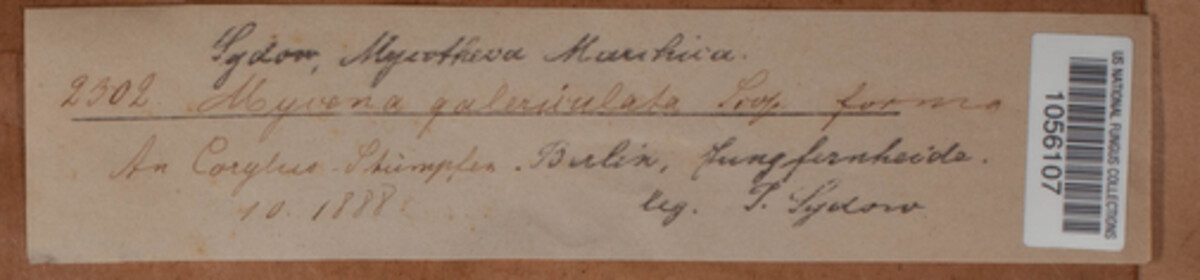 Sydow, Mycotheca Marchica.
2302. Mycena galericulata Scop. forma
An Corylus-Stümpfen. Berlin, Jungfernheide.
10. 1888. leg. P. Sydow
US NATIONAL FUNGUS COLLECTIONS
1056107